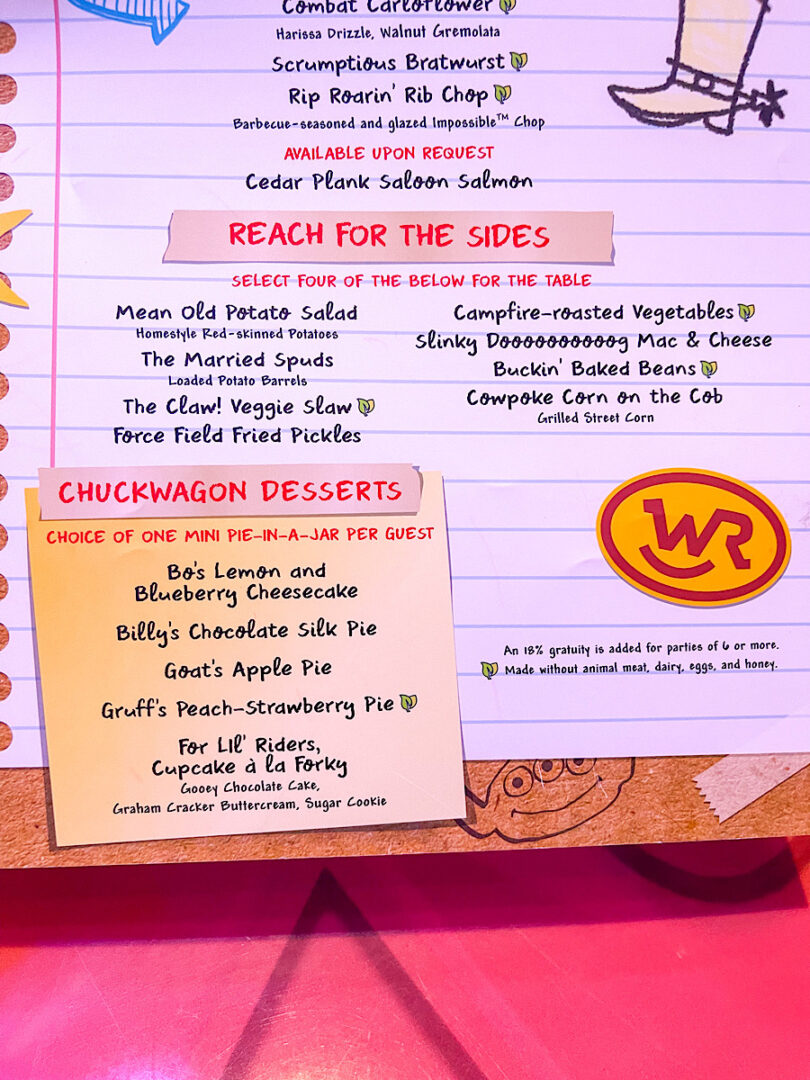 Combat Carloflower
Harissa Drizzle, Walnut Gremolata
Scrumptious Bratwurst
Rip Roarin' Rib Chop
Barbecue-seasoned and glazed Impossible™ Chop
AVAILABLE UPON REQUEST
Cedar Plank Saloon Salmon
REACH FOR THE SIDES
SELECT FOUR OF THE BELOW FOR THE TABLE
Mean Old Potato Salad
Homestyle Red-skinned Potatoes
The Married Spuds
Loaded Potato Barrels
The Claw! Veggie Slaw
Force Field Fried Pickles
Campfire-roasted Vegetables
Slinky Doooooooooog Mac & Cheese
Buckin' Baked Beans
Cowpoke Corn on the Cob
Grilled Street Corn
CHUCKWAGON DESSERTS
CHOICE OF ONE MINI PIE-IN-A-JAR PER GUEST
Bo's Lemon and
Blueberry Cheesecake
Billy's Chocolate Silk Pie
Goat's Apple Pie
Gruff's Peach-Strawberry Pie
For Lil' Riders,
Cupcake à la Forky
Gooey Chocolate Cake,
Graham Cracker Buttercream, Sugar Cookie
WR
An 18% gratuity is added for parties of 6 or more.
Made without animal meat, dairy, eggs, and honey.